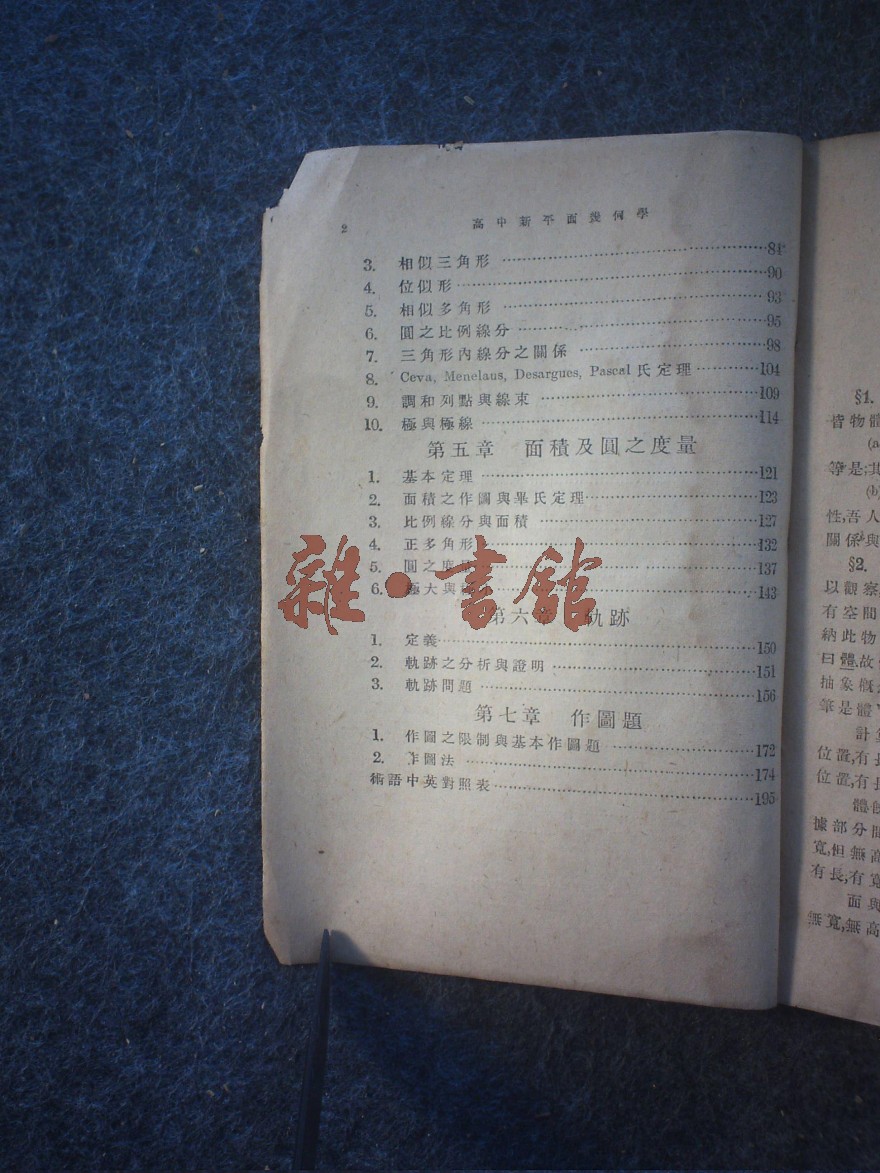 2 高中新平面幾何學
3. 相似三角形 84
4. 位似形 90
5. 相似多角形 93
6. 圓之比例線分 95
7. 三角形內線分之關係 98
8. Ceva, Menelaus, Desargues, Pascal 氏定理 104
9. 調和列點與線束 109
10. 極與極線 114
第五章 面積及圓之度量
1. 基本定理 121
2. 面積之作圖與畢氏定理 123
3. 比例線分與面積 127
4. 正多角形 132
5. 圓之度 137
6. 極大與 143
第六章 軌跡
1. 定義 150
2. 軌跡之分析與證明 151
3. 軌跡問題 156
第七章 作圖題
1. 作圖之限制與基本作圖題 172
2. 作圖法 174
術語中英對照表 195
雜·書館
§1.
皆物體
(a
等是;其
(b)
性,吾人
關係與
§2.
以觀察,
有空間
納此物
曰體.故
抽象概
筆是體
計算
位置,有長
位置,有長
體
據部分
寬,但無高
有長,有寬
面與
無寬,無高